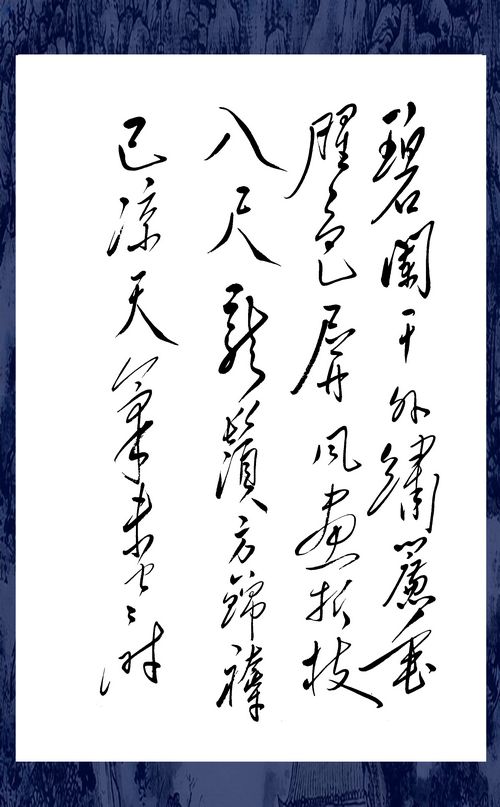 碧闌干外繡簾垂
腥色屏風畫折枝
八尺龍鬚方錦褥
已涼天氣未寒時